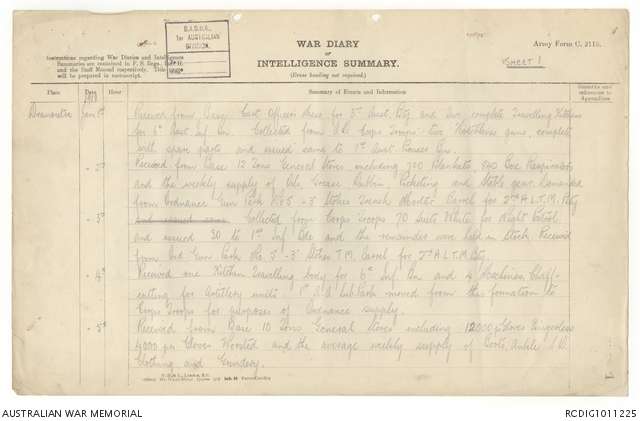 D.A.D.O.S.
1st AUSTRALIAN
DIVISION.
WAR DIARY
or
INTELLIGENCE SUMMARY.
(Erase heading not required.)
Army Form C. 2118.
SHEET 1
Instructions regarding War Diaries and Intelligence
Summaries are contained in F. S. Regs., Part II.
and the Staff Manual respectively. Title
will be prepared in manuscript.
Place
Date
Hour
Summary of Events and Information
Remarks and
references to
Appendices
1918
Received from Base and two complete Travelling Kitchens
for 1st Inf Bn. Collected from Corps Troops two Hotchkiss guns, complete
with spare parts and issued same to 1st Aust Pioneer Bn.
2nd
Received from Base 12 Tons General Stores including 700 Blankets, Box Respirators
and the weekly supply of Oils, Grease Dubbin, Picketing and Stable gear. Demanded
from Ordnance Gun Park 3" Stokes Trench Mortar Barrel for 2nd A.L.T.M. Bty
and issued same
3rd
Collected from Corps Troops 70 Suits White for Night Patrol
and issued 30 to 1st Inf Bde and the remainder were held in Stock. Received
from Ord Gun Park the 3" Stokes T.M. Barrel for 2nd A.L.T.M. Bty.
4th
Received one Kitchen Travelling body for 6th Inf Bn and 4 Machines Chaff-
cutting for Artillery units. moved from this formation to
Corps Troops for purposes of Ordnance supply.
5th
Received from Base 10 Tons General Stores including 12000 Gloves Fingerless
4000 prs Gloves Worsted and the average weekly supply of Boots, Ankle S.D.
Clothing and Sundery.
AUSTRALIAN WAR MEMORIAL
RCDIG1011225